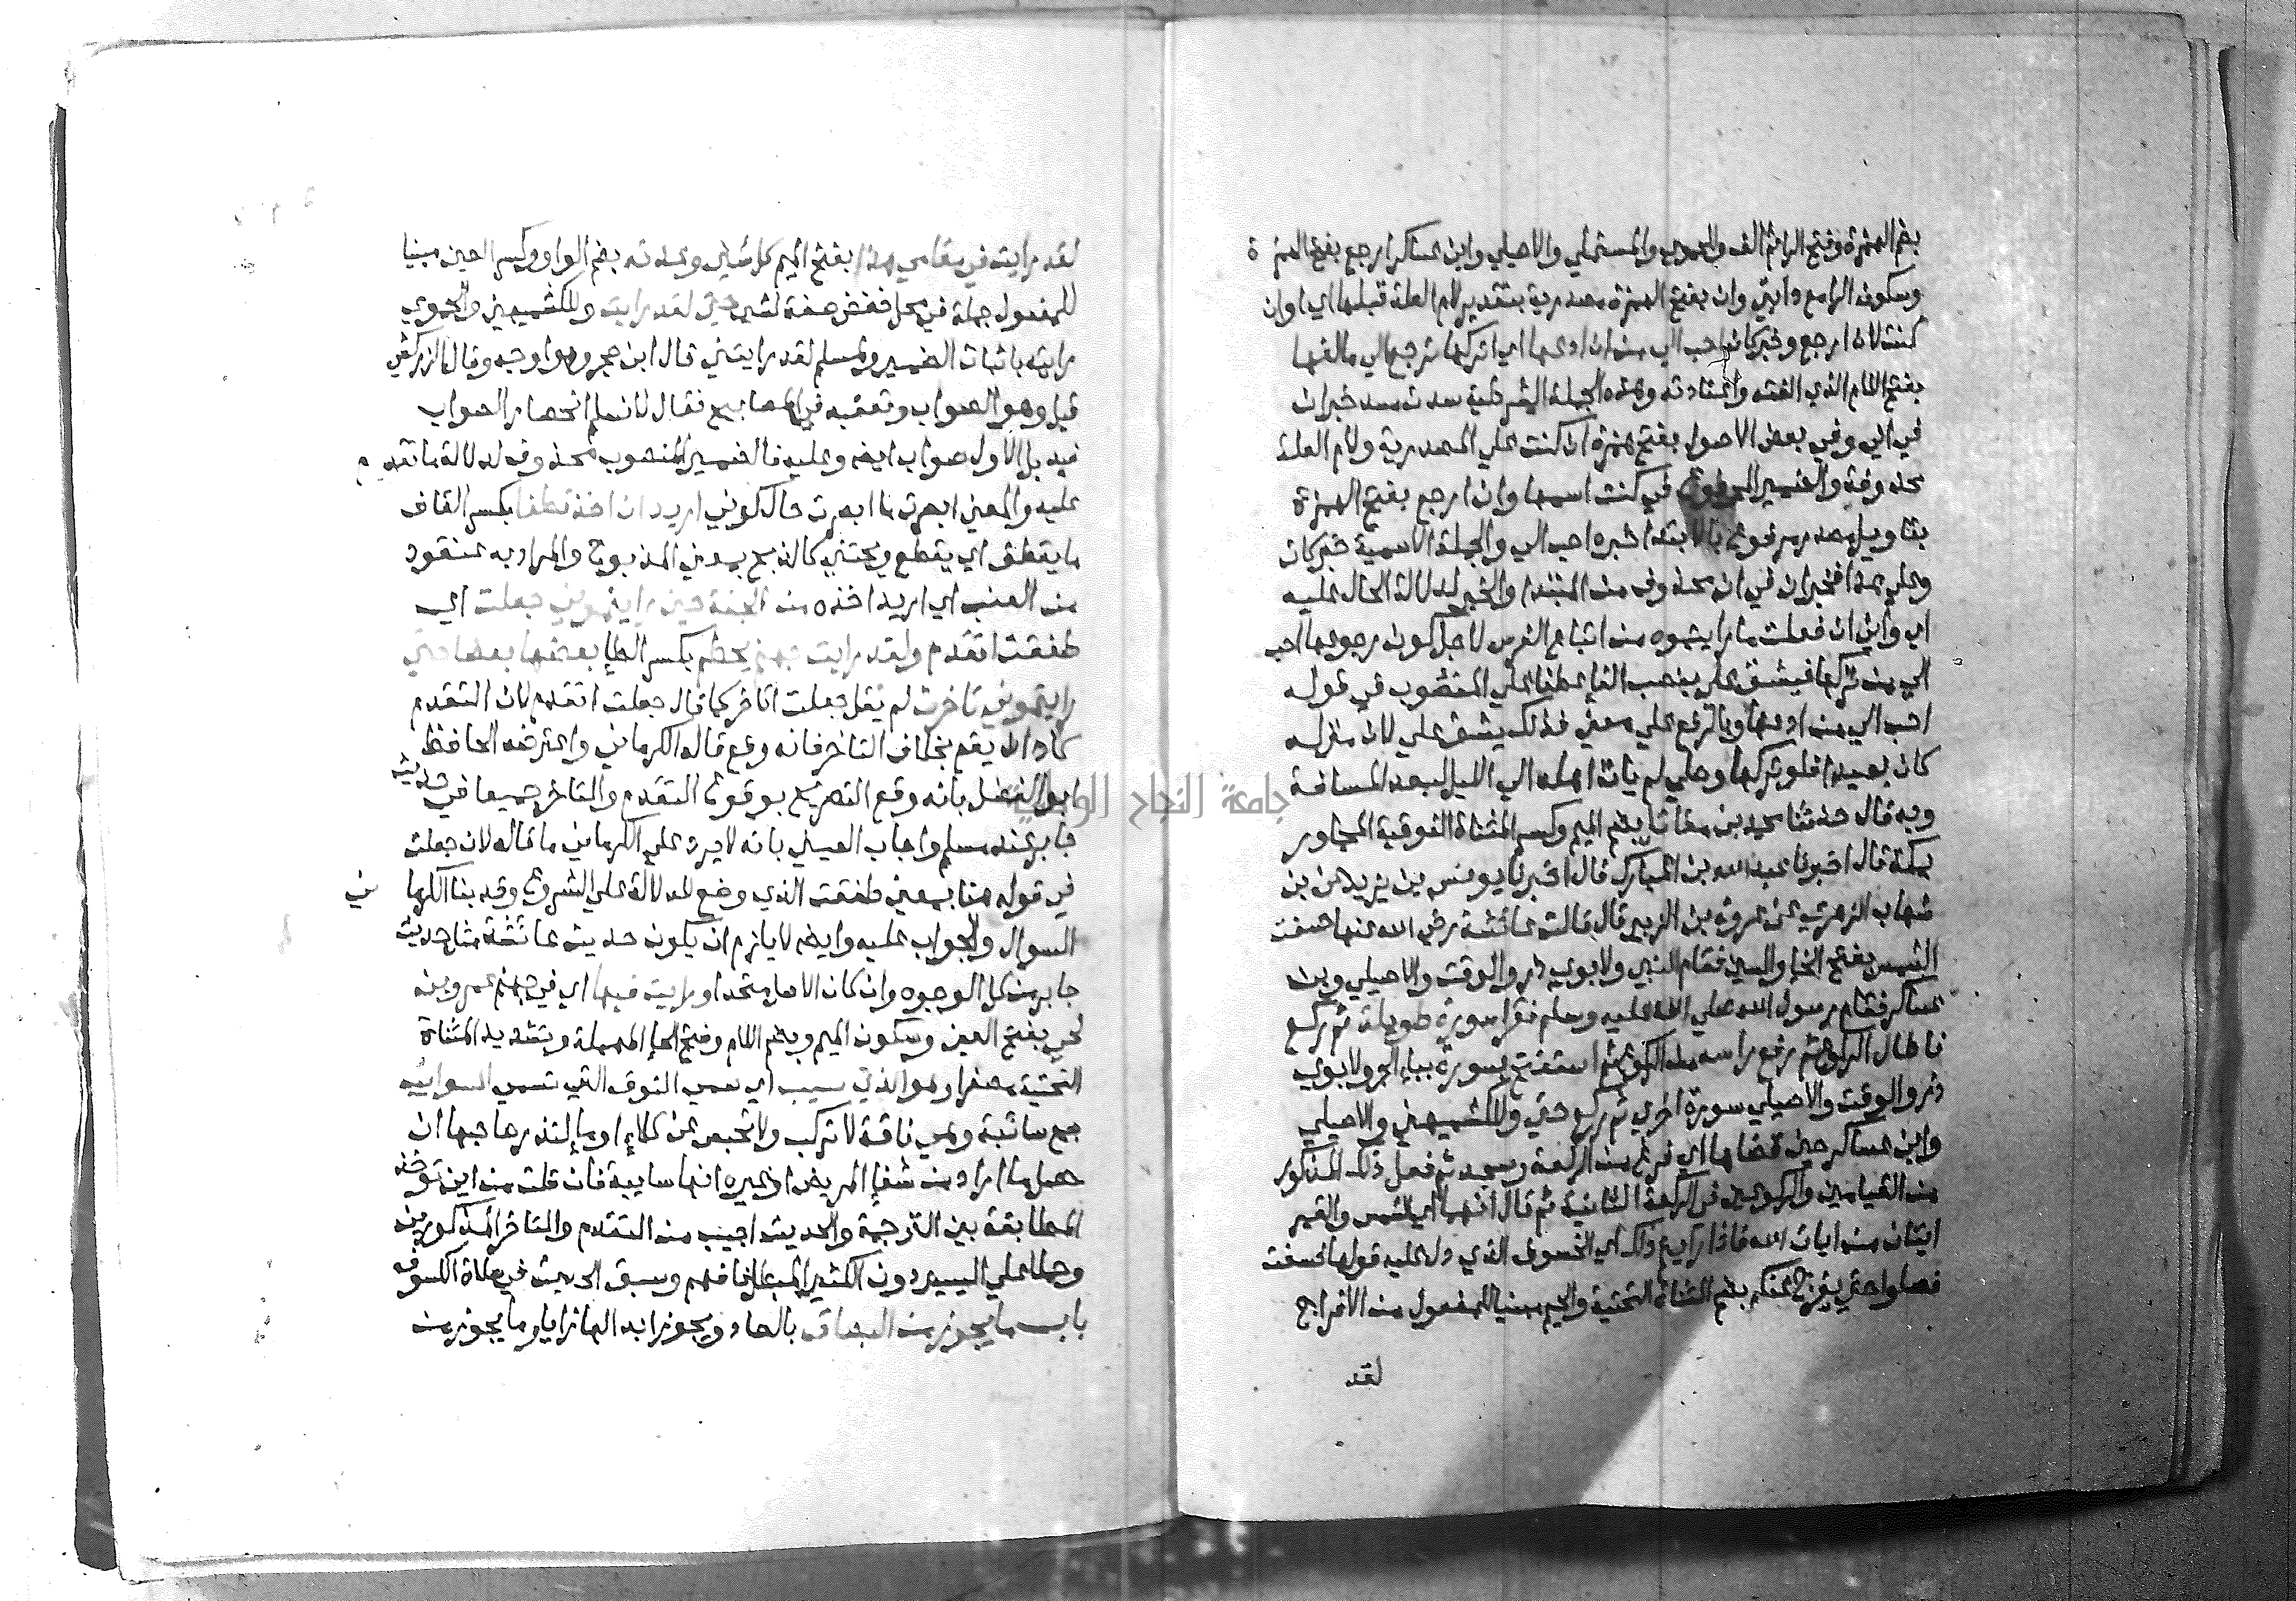 بضم الهمزة وفتح الراثم الف والحموي والمستملي والاصيلي وابن عساكر ارجع بفتح الهمزة
وسكون الرا مع دابتي وان بفتح الهمزة مصدرية بتقدير لام العلة قبلها اي وان
كنت لان ارجع وخبر كان احب الي من ان ادعها اي اتركها ترجع الي مالفها
بفتح اللام الذي الفته واعتادته وهذه الجملة الشرطية سدت مسد خبر ان
في اني وفي بعض الاصول بفتح همزة ان كنت علي المصدرية ولام العلة
محذوفة والضمير المرفوع في كنت اسمها وان ارجع بفتح الهمزة
بتاويل مصدر مرفوع بالابتدا خبره احب الي والجملة الاسمية خبر كان
وعلي هذا فخبر ان في اني محذوف من المبتدا والخبر لدلالة الحال عليه
اي واني ان فعلت ما رايتموه من اتباع الفرس لاجل كون رجوعها احب
الي من تركها فيشق علي بنصب القا عطفا علي المنصوب في قوله
احب الي من ادعها وبالرفع علي معني فذلك يشق علي لان منزله
كان بعيدا فلو تركها وصلي لم يات اهله الي الليل لبعد المسافة
وبه قال حدثنا محمد بن مقاتل بضم الميم وكسر المثناة الفوقية المجاور
بمكة قال اخبرنا عبد الله بن المبارك قال اخبرنا يونس بن يزيد عن بن
شهاب الزهري عن عروة بن الزبير قال قالت عائشة رضي الله عنها خسفت
الشمس بفتح الخا والسين فقام النبي ولابوي ذر والوقت والاصيلي وبن
عساكر فقام رسول الله صلي الله عليه وسلم فقرا سورة طويلة ثم ركع
فاطال الركوع ثم رفع راسه من الركوع ثم استفتح بسورة بباء الجر ولابوي
ذر والوقت والاصيلي سورة اخري ثم ركع حتي وللكشميهني والاصيلي
وابن عساكر حين قضاها اي فرغ من الركعة وسجد ثم فعل ذلك المذكور
من القيامين والركوعين في الركعة الثانية ثم قال انهما اي الشمس والقمر
ايتان من ايات الله فاذا رايتم ذلك اي الخسوف الذي دل عليه قولها خسفت
فصلوا حتي يفرج عنكم بضم المثناة التحتية والجيم مبنيا للمفعول من الافراج
لقد
لقد رايت في مقامي هذا بفتح الميم كل شي وعدته بضم الواو وكسر العين مبنيا
للمفعول جملة في محل خفض صفة لشي حتي لقد رايت وللكشميهني والحموي
رايته باثبات الضمير ولمسلم لقد رايتني قال ابن حجر وهو اوجه وقال الزركشي
قيل وهو الصواب وتعقبه في المصابيح فقال لا نسلم انحصار الصواب
فيه بل الاول صواب ايضا وعليه فالضمير المنصوب محذوف لدلالة ما تقدم
عليه والمعني ابصرت ما ابصرت حال كوني اريد ان اخذ قطفا بكسر القاف
ما يقطف اي يقطع ويجتني كالذبح بمعني المذبوح والمراد به عنقود
من العنب اي اريد اخذه من الجنة حين رايتموني جعلت اي
طفقت اتقدم ولقد رايت جهنم يحطم بكسر الطا بعضها بعضا حتي
رايتموني تاخرت لم يقل جعلت اتاخر كما قال جعلت اتقدم لان التقدم
كاد ان يقع بخلاف التاخر فانه وقع قاله الكرماني واعترضه الحافظ
ابو الفضل بانه وقع التصريح بوقوع التقدم والتاخر جميعا في حديث
جابر عند مسلم واجاب العيني بانه لا يرد علي الكرماني ما قاله لان جعلت
في قوله هنا بمعني طفقت الذي وضع للدلالة علي الشروع وقد بنا الكرماني
السوال والجواب عليه وايضا لا يلزم ان يكون حديث عائشة مثل حديث
جابر من كل الوجوه وان كان الاصل متحدا ورايت فيها اي في جهنم عمرو بن
لحي بفتح العين وسكون الميم وبضم اللام وفتح الحا المهملة وبتشديد المثناة
التحتية مصغرا وهو الذي سيب اي سمي النوق التي تسمي السوايب
جمع سائبة وهي ناقة لا تركب ولا تحبس عن كلاء او ماء لنذر صاحبها ان
حصل ما اراد من شفا المريض او غيره انها سايبة فان قلت من اين توخذ
المطابقة بين الترجمة والحديث اجيب من التقدم والتاخر المذكورين
وحملا علي اليسير دون الكثير المبطل فافهم وسبق الحديث في صلاة الكسوف
باب ما يجوز من البصاق بالصاد ويجوز ابدالها زايا وما يجوز من
جامعة النجاح الوطنية